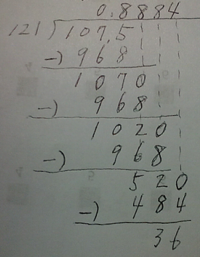 0.8884
121)107.5
-)968
1070
-)968
1020
-)968
520
-)484
36